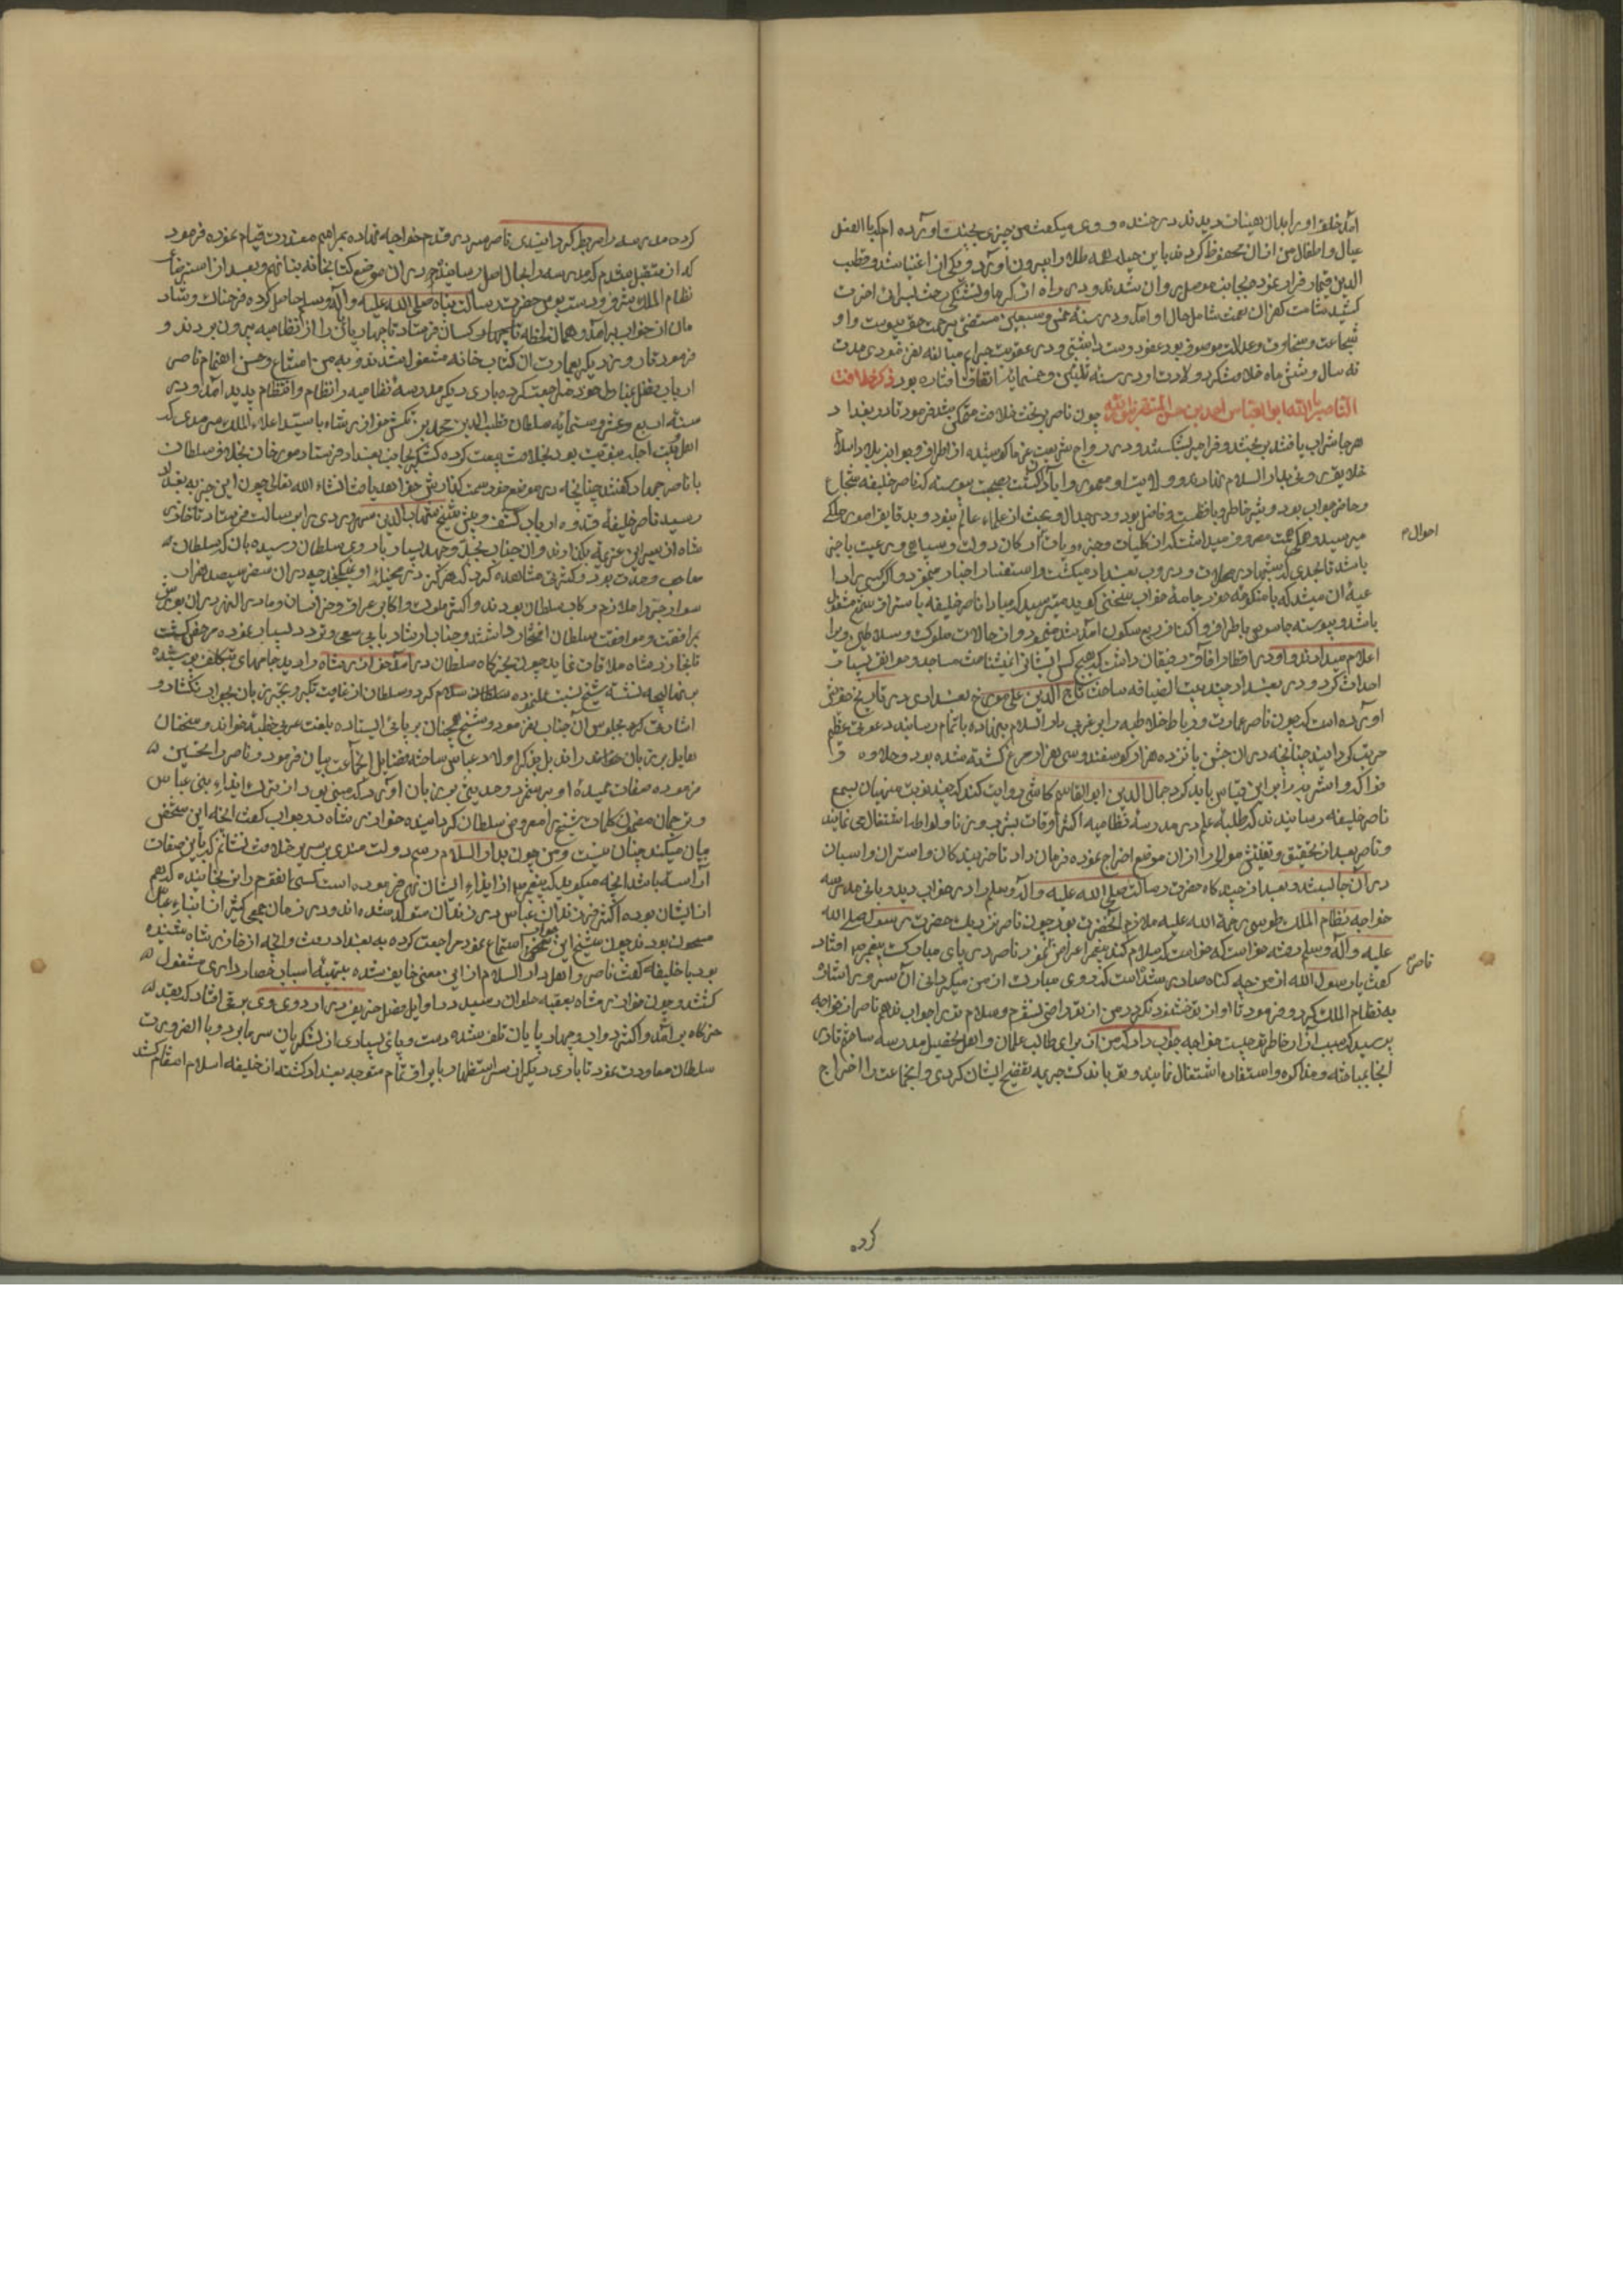 آمد خلق او را بدان هیئات دیدند در خنده و وی میگفت من چیزی بجنت آورده ام که با الفعل
عیال و اطفال من از آن محفوظ کردند باین حیله همه طلا را بیرون آورد و یکی از اغنیا شد و قطب
الدین قیماز فرار نمود و بجانب موصل روان شدند و در راه از کرما و تشنکی رخت بسرای آخرت
کشید شامت کفران نعمت شامل حال او آمد و در سنه خمس و سبعین مستضی برحمت حق پیوست و او
شجاعت و سخاوت و عدالت موصوف بود عفو دوست داشتی و در عقوبت جرایم مبالغه نفرمودی مدت
نه سال و شش ماه خلافت کرد و ولادت او در سنه ثلثین و خمسمایه اتفاق افتاده بود ذکر خلافت
الناصر بالله ابو العباس احمد بن حسن المستضی بالله چون ناصر بر تخت خلافت متمکن شد فرمود تا در بغداد
هر جا شراب یافتند بریختند و مزامیر بشکستند و در رواج شریعت غرا کوشیده از اطراف و جوانب بلاد اسلام
خلایق روی ببلد دار السلام نهادند و ولایت او معمور و آبادان کشت پیوسته که ناصر خلیفه شجاع
و حاضر جواب بود و تیز خاطر و با فطنت و فاضل بود و در جدال و بحث از علماء عالم بود و بدقایق امور ملکی
میرسید و همکی همت مصروف میداشت که از کلیات و جزویات ارکان دولت و سپاهی و رعیت با خبر
باشد تا بحدی که شبها در محلات و دروب بغداد میکشت و استفسار اخبار مینمود و اکر کسی را داعیه
آن میشد که با منکوحه خود در جامه خواب سخنی کوید میترسید که مبادا ناصر خلیفه باستراق سمع مشغول
باشد و پیوسته جاسوس باطراف و اکناف ربع مسکون آمد شد مینمود و از حالات ملوک و سلاطین ویرا
اعلام میدادند و او در اقطار آفاق رفیقان داشت که هیچ کس ایشانرا نشناخت مساجد و خوانق بسیار
احداث کرد و در بغداد چند بیت الضیافه ساخت تاج الدین علی مورخ بغدادی در تاریخ خویش
آورده است که چون ناصر عمارت و رباط خلاطیه را بر غربی دار السلام بنا نهاده باتمام رسانید دعوتی عظیم
مرتب کردانید چنانچه در آن جشن پانزده هزار کوسفند و سی هزار مرغ کشته شده بود و حلاوه و
فواکه و اشربه را بر این قیاس باید کرد جمال الدین ابو القاسم کاشی روایت کند که چند نوبت منهیان بسمع
ناصر خلیفه رسانیدند که طلبه علم در مدرسه نظامیه اکثر اوقات بشرب و زنا و لواطه اشتغال می نمایند
و ناصر بعد از تحقیق و تفتیش موالی را از آن موضع اخراج نموده فرمان داد تا خربندکان و استران و اسبان
در آن جا بستند و بعد از چند کاه حضرت رسالت صلی الله علیه و آله و سلم را در خواب دید و بانی مدرسه
خواجه نظام الملک طوسی رحمة الله علیه ملازم آنحضرت بود چون ناصر نزدیک حضرت رسول صلی الله
علیه و آله و سلم رفته خواست که سلام کند پیغمبر اعراض نمود ناصر در پای مبارک پیغمبر افتاد
کفت یا رسول الله از من چه کناه صادر شده است که روی مبارک از من میکردانی آن سرور اشاره
به نظام الملک کرد و فرمود تا او از تو خشنود نکردد من از تو راضی نشوم و سلام ترا جواب ندهم ناصر از خواجه
پرسید که سبب آزار خاطر تو چیست خواجه جواب داد که من از برای طالب علمان و اهل تحصیل مدرسه ساختم تا در
آنجا بمباحثه و مذاکره و استفاده اشتغال نمایند و تو باندک جریمه تفضیح ایشان کردی و آنجماعت را اخراج
احوال
ناصر
کرده
کرده مدرسه را مربط کردانیدی ناصر سر در قدم خواجه نهاده بمراسم معذرت قیام نموده فرمود
که از متقبل شدم که مدرسه را بحال اصل رسانیده در آن موضع کتابخانه بنا نهم و بعد از استرضاء
نظام الملک بشرف دست بوس حضرت رسالت پناه صلی الله علیه و آله و سلم حاصل کرده فرحناک و شاد
مان از خواب برآمد و همان لحظه کسان فرستاد تا چهارپایان را از نظامیه بیرون بردند و
فرمود تا روز دیکر بعمارت آن کتاب خانه مشغول شدند و به یمن و حسن اهتمام ناصر
ارباب فضل بمناط خود مراجعت کرده باری دیکر مدرسه نظامیه را نظام و انتظام پدید آمد و در
سنه اربع و عشر و ستمایه سلطان قطب الدین محمد بن تکش خوارزمشاه با سید اعلاء الملک ترمدی که
بود بخلافت بیعت کرده لشکر بجانب بغداد فرستاد
با ناصر جهاد کفتند چنانچه در موضع خود سمت کذارش خواهد یافت انشاء الله تعالی چون این خبر به بغداد
رسید ناصر خلیفه قدوه ارباب کشف و یقین شیخ شهاب الدین سهروردی برابر رسالت فرستاد تا خوارزم
شاه از سر این عزیمه بکذرانند و آن جناب بجد و جهد بسیار باردوی سلطان رسیده
و کثرتی مشاهده کرد که هرکز در مخیله او نکنجیده در آن سفر سیصد هزار
سوار جرار ملازم رکاب سلطان بودند و اکثر ملوک و اکابر عراق و خراسان و ماوراء النهر در آن یورش
بمرافقت و موافقت سلطان افتخار داشتند و جناب ارشاد مآبی سعی و تردد بسیار نموده مرخص کشت
تا بخوارزمشاه ملاقات نماید چون بخرکاه سلطان در آمد خوارزمشاه را دید جامهای بی تکلف پوشیده
بر نهالیچه نشسته شیخ سلام کرد و سلطان از غایت تکبر و تجبر زبان بجواب نکشاد و
اشارت کرد بجلوس آن جناب نفرمود و شیخ همچنان بر پای ایستاده بلغت عربی خطبه خواند و سخنان
بر زبان راند بل بذکر اولاد عباس ساخته فضایل آنجماعت بیان فرمود و ناصر را تحسین
فرموده صفات حمیده او بر شمرد و حدیثی بر زبان آورد که مبنی بود از ترک ایذاء بنی عباس
و ترجمان مضمون کلمات شیخ را معروض سلطان کردانیده خوارزمشاه در جواب کفت آنچه این شخص
بیان میکند چنان نیست و من چون بدار السلام رسم دولت مندی بر سریر خلافت نشانم که باین صفات
آراسته باشد آنچه میکوید که پیغمبر از ایذاء ایشان نهی فرموده است کسی آنقوم را نرنجانیده که هم
از ایشان بوده اکثر فرزندان عباس در زندان متولد شده اند و در زمان جمعی کثیر از ابناء عباس
مسجون بودند چون شیخ این سخن استماع نمود مراجعت کرده به بغداد رفت و آنچه از خوارزمشاه شنیده
بود با خلیفه کفت ناصر و اهل دار السلام از این معنی خایف شده بتهیه اسباب حصار داری مشغول
کشتند و چون خوارزمشاه بعقبه حلوان رسید در اوایل فصل خریف در اردوی وی برفی افتاد که بعد
خرکاه برآمد و اکثر دواب و چهارپایان تلف شده دست و پای بسیاری از لشکریان سرما برد و بالضرورت
سلطان معاودت نمود تا باری دیکر از سر استظهار متوجه بغداد کشته از خلیفه اسلام انتقام کشد